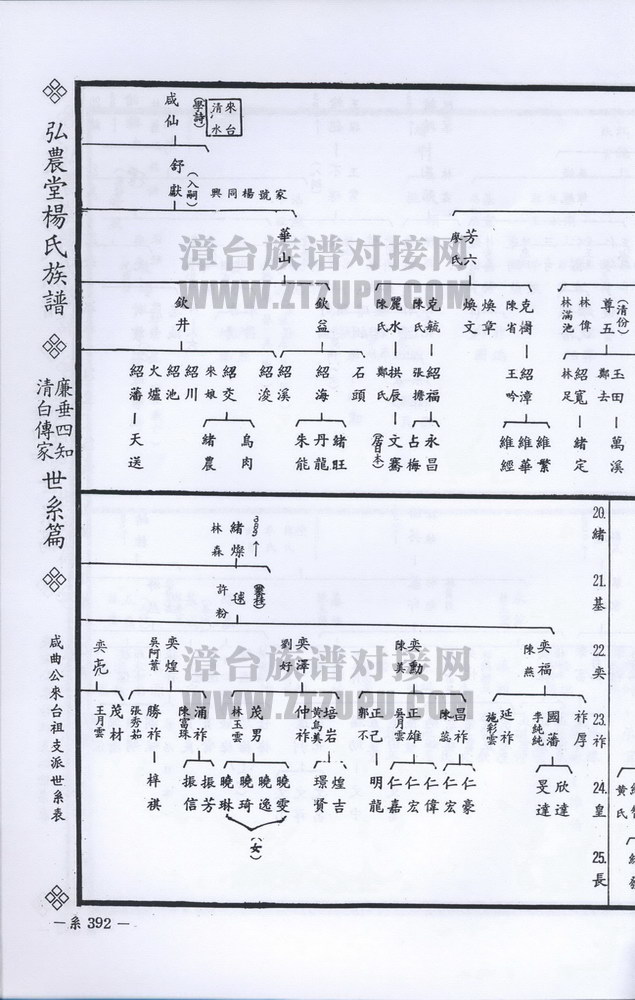 弘農堂楊氏族譜
廉垂四知
清白傳家
世系篇
咸曲公來台祖支派世系表
— 系 392 —
來台
清水
(學詩)
咸仙
舒獻
(入嗣)
家號楊同興
華山
芳六
廖氏
(清份)
尊五
林偉
林滿池
克樹
陳省
煥章
煥文
克毓
陳氏
麗水
陳氏
欽益
欽井
玉田
鄭去
紹寬
林足
紹漳
王吟
紹福
張擔
拱辰
鄭氏
石頭
紹海
紹溪
紹浚
紹交
來娘
紹川
紹池
火爐
紹藩
萬溪
緒定
維繁
維華
維經
永昌
占梅
文騫
(居日本)
緒旺
丹龍
朱能
烏肉
緒農
天送
20. 緒
21. 基
22. 奕
23. 祚
24. 皇
25. 長
389
緒燦
林森
許粉
奕福
陳燕
奕勳
陳英
奕澤
劉好
奕煌
吳阿葉
奕亮
祚厚
國藩
李純純
延祚
施彩雲
昌祚
陳蕊
正雄
吳月雲
正己
鄭不
培岩
黃烏美
仲祚
茂男
林玉雲
涌祚
陳富珠
勝祚
張秀茹
茂材
王月雲
欣達
旻達
仁豪
仁宏
仁偉
仁宏
仁嘉
明龍
煌吉
璟賢
曉雯
曉逸
曉琦
曉琳
(女)
振芳
振信
梓祺
黃氏
漳台族谱对接网
WWW.ZTZUPU.COM
漳台族谱对接网
WWW.ZTZUPU.COM